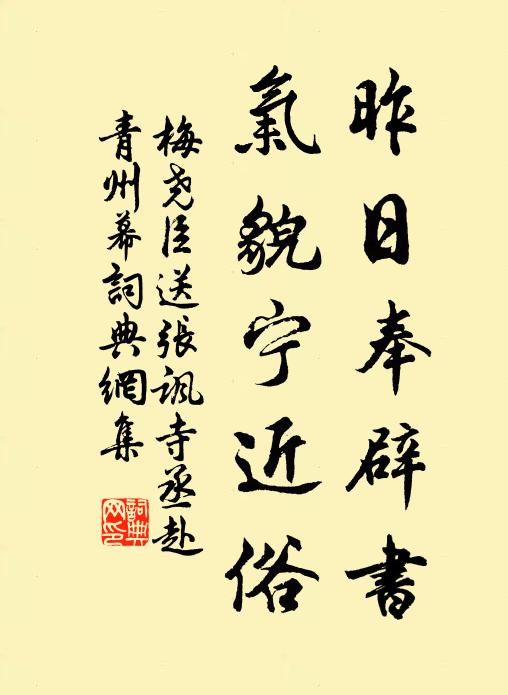 昨日奉辟書
氣貌宁近俗
梅尧臣送張諷寺丞赴
青州幕詞典網集
詞典
网印